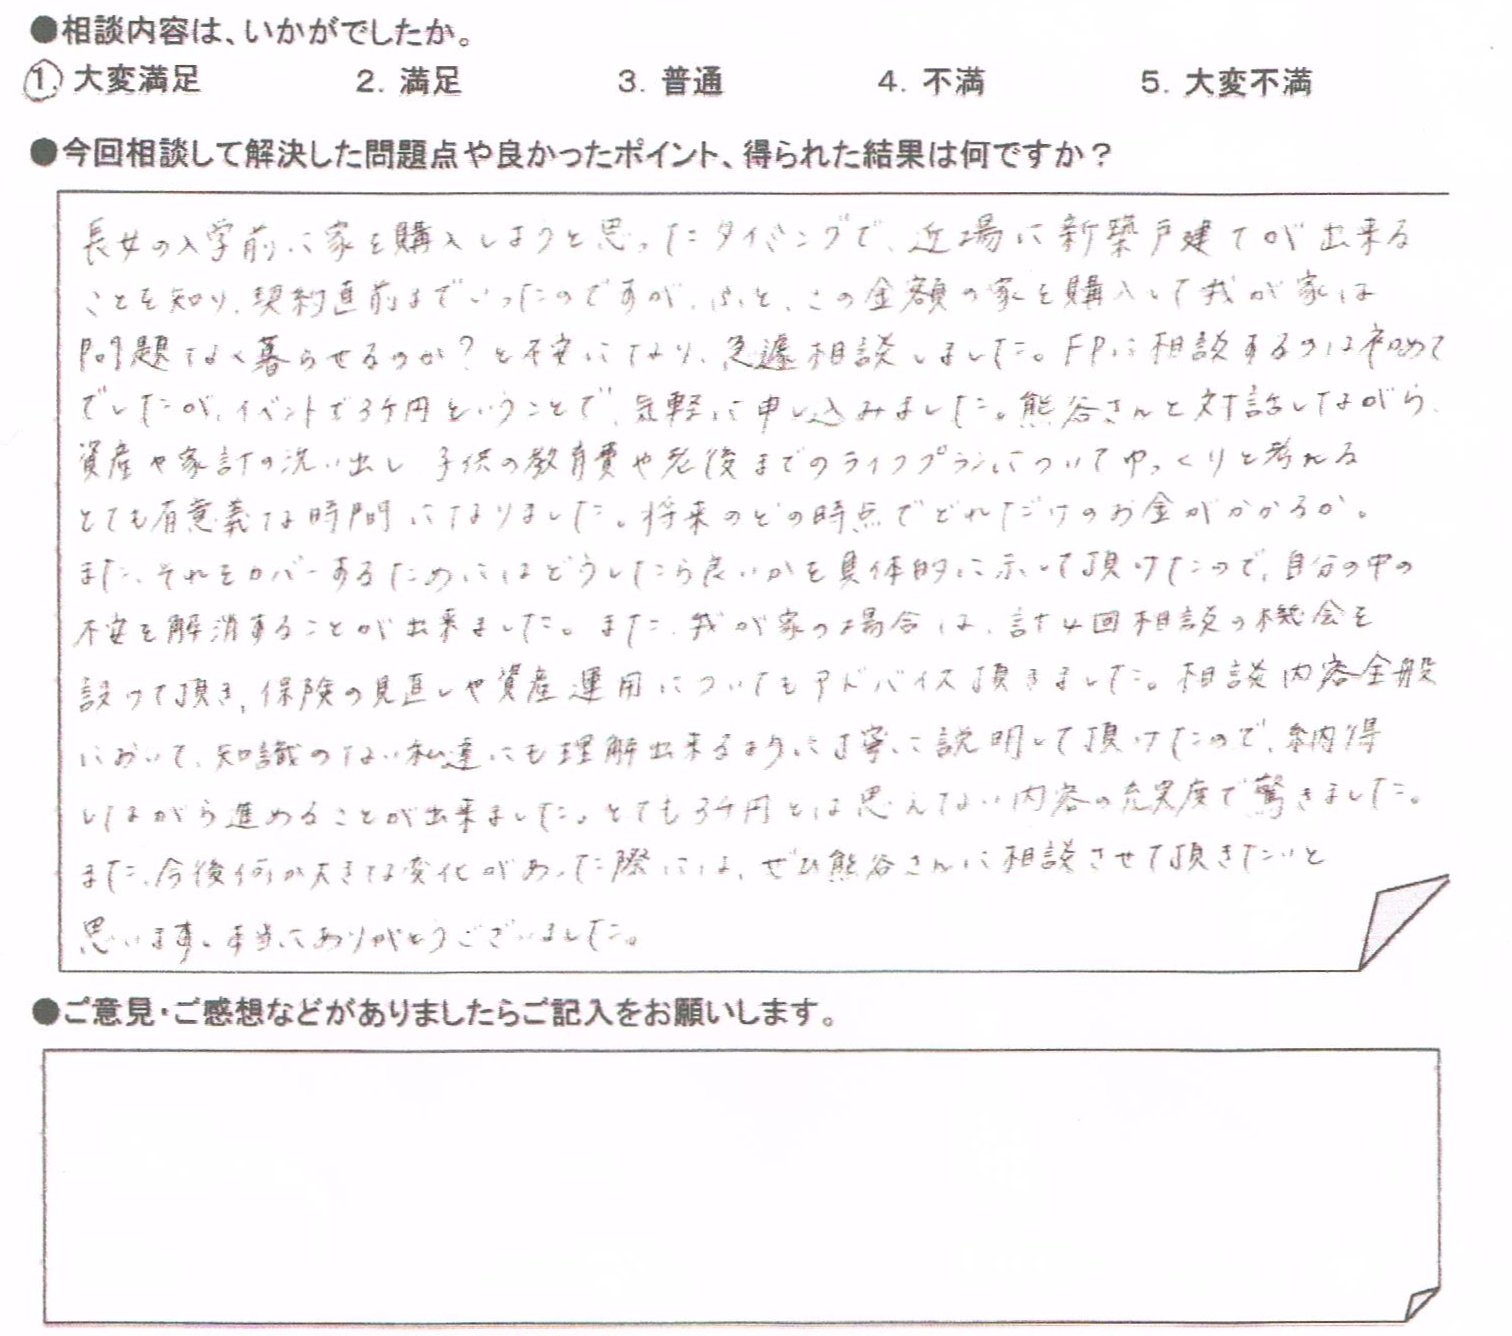 ●相談内容は、いかがでしたか。
1. 大変満足 2. 満足 3. 普通 4. 不満 5. 大変不満
●今回相談して解決した問題点や良かったポイント、得られた結果は何ですか？
長女の入学前に家を購入しようと思ったタイミングで、近場に新築戸建てが出来る
ことを知り、契約直前までいったのですが、ふと、この金額の家を購入して我が家は
問題なく暮らせるのか？と不安になり、急遽相談しました。FPに相談するのは初めて
でしたが、イベントで3千円ということで、気軽に申し込みました。熊谷さんと対話しながら、
資産や家計の洗い出し 子供の教育費や老後までのライフプランについてゆっくりと考れる
とても有意義な時間になりました。将来のどの時点でどれだけのお金がかかるか。
また、それをカバーするためにはどうしたら良いかを具体的に示して頂けたので、自分の中の
不安を解消することが出来ました。また、我が家の場合は、計4回相談の機会を
設けて頂き、保険の見直しや資産運用についてもアドバイス頂きました。相談内容全般
において、知識のない私達にも理解出来るように丁寧に説明して頂けたので、納得
しながら進めることが出来ました。とても3千円とは思えない内容の充実度で驚きました。
また、今後何か大きな変化があった際には、ぜひ熊谷さんに相談させて頂きたいと
思います。本当にありがとうございました。
●ご意見・ご感想などがありましたらご記入をお願いします。